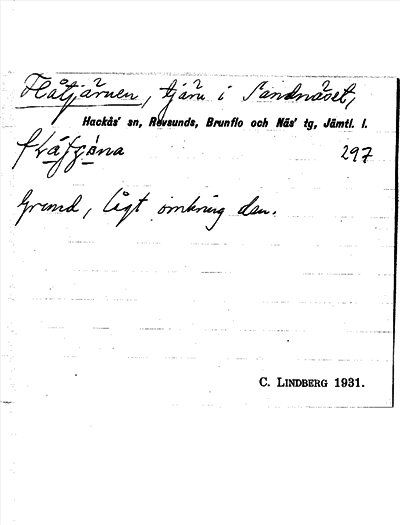 Flåtjärnen, tjärn i Sandnäset,
Hackås' sn, Revsunds, Brunflo och Näs' tg, Jämtl. l.
297
Grund, lågt omkring den.
C. LINDBERG 1931.